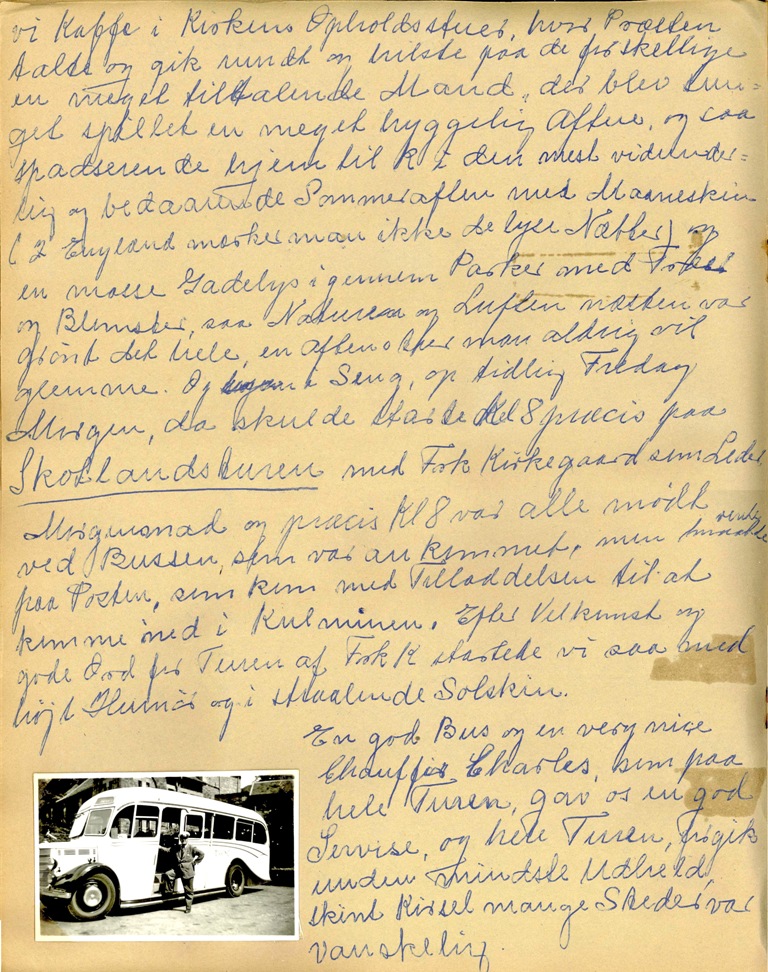 vi Kaffe i Kirkens Opholdsstuer, hvor Præsten
talte og gik rundt og hilste paa de forskellige
en meget tiltalende Mand, der blev sun=
get spillet en meget hyggelig Aften, og saa
spadserende hjem til K i den mest vidunder=
lig og bedaarende Sommeraften med Maaneskin
( I England mærker man ikke de lyse Nætter) og
en masse Gadelys igennem Parker med Træer
og Blomster, saa Naturen og Luften næsten var
grønt det hele, en aften man aldrig vil
glemme. Og i Seng, op tidlig Fredag
Morgen, da skulde starte Kl 8 præcis paa
Skotlandsturen med Frk Kirkegaard som Leder.
Morgenmad og præcis Kl 8 var alle mødt
ved Bussen, som var ankommet, men maatte vente
paa Posten, som kom med Tilladdelsen til at
komme ned i Kulminen. Efter Velkomst og
gode Ord for Turen af Frk K startede vi saa med
højt Humør og i straalende Solskin.
En god Bus og en very nice
Chauffør Charles, som paa
hele Turen, gav os en god
Servise, og hele Turen, forgik
unden mindste Udheld,
skint Kirsel mange Steder, var
vanskelig.